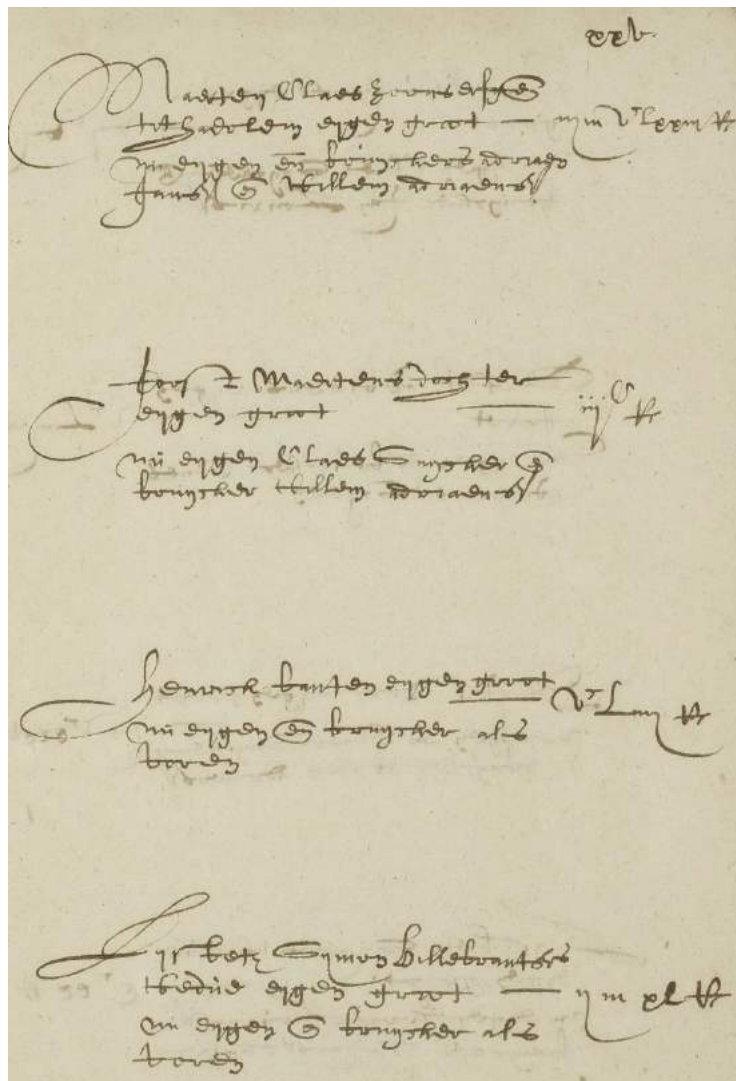 xxv
Maerten Claes zoons erfgen
tot haerlem eygen groot — iiii m vc lxxiii R
nu eygen en bruychers adriaen
Jans en Willem adriaens
Maertens dochter
eygen groot — iijC R
nu eygen Claes Suycker en
bruycher Willem adriaens
Henrick banten eygen groot vc Liiii R
nu eygen en bruycher als
voren
Lijsbetz Symon Hillebrants
wedue eygen groot — ij m xL R
nu eygen en bruycher als
voren